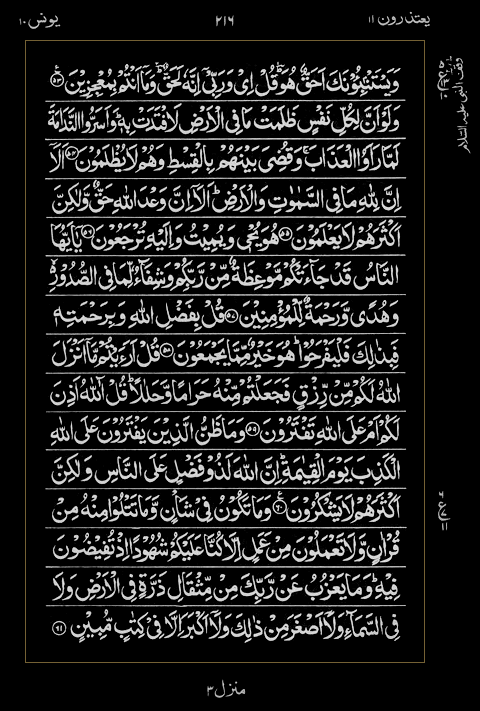 یعتذرون ۱۱ ۲۱۶ یونس ۱۰
وَيَسْتَنْۢبِـُٔوْنَكَ اَحَقٌّ هُوَ ؕ قُلْ اِیْ وَرَبِّیْۤ اِنَّهٗ لَحَقٌّ ؔؕ وَمَاۤ اَنْتُمْ بِمُعْجِزِیْنَ ﴿۵۳﴾
وَلَوْ اَنَّ لِكُلِّ نَفْسٍ ظَلَمَتْ مَا فِی الْاَرْضِ لَافْتَدَتْ بِهٖ ؕ وَاَسَرُّوا النَّدَامَةَ
لَمَّا رَاَوُا الْعَذَابَ ۚ وَقُضِیَ بَیْنَهُمْ بِالْقِسْطِ وَهُمْ لَا یُظْلَمُوْنَ ﴿۵۴﴾ اَلَاۤ
اِنَّ لِلّٰهِ مَا فِی السَّمٰوٰتِ وَالْاَرْضِ ؕ اَلَاۤ اِنَّ وَعْدَ اللّٰهِ حَقٌّ وَّلٰكِنَّ
اَكْثَرَهُمْ لَا یَعْلَمُوْنَ ﴿۵۵﴾ هُوَ یُحْیٖ وَیُمِیْتُ وَاِلَیْهِ تُرْجَعُوْنَ ﴿۵۶﴾ یٰۤاَیُّهَا
النَّاسُ قَدْ جَآءَتْكُمْ مَّوْعِظَةٌ مِّنْ رَّبِّكُمْ وَشِفَآءٌ لِّمَا فِی الصُّدُوْرِ ۙ۬
وَهُدًی وَّرَحْمَةٌ لِّلْمُؤْمِنِیْنَ ﴿۵۷﴾ قُلْ بِفَضْلِ اللّٰهِ وَبِرَحْمَتِهٖ
فَبِذٰلِكَ فَلْیَفْرَحُوْا ؕ هُوَ خَیْرٌ مِّمَّا یَجْمَعُوْنَ ﴿۵۸﴾ قُلْ اَرَءَیْتُمْ مَّاۤ اَنْزَلَ
اللّٰهُ لَكُمْ مِّنْ رِّزْقٍ فَجَعَلْتُمْ مِّنْهُ حَرَامًا وَّحَلٰلًا ؕ قُلْ آٰللّٰهُ اَذِنَ
لَكُمْ اَمْ عَلَی اللّٰهِ تَفْتَرُوْنَ ﴿۵۹﴾ وَمَا ظَنُّ الَّذِیْنَ یَفْتَرُوْنَ عَلَی اللّٰهِ
الْكَذِبَ یَوْمَ الْقِیٰمَةِ ؕ اِنَّ اللّٰهَ لَذُوْ فَضْلٍ عَلَی النَّاسِ وَلٰكِنَّ
اَكْثَرَهُمْ لَا یَشْكُرُوْنَ ﴿۶۰﴾ وَمَا تَكُوْنُ فِیْ شَاْنٍ وَّمَا تَتْلُوْا مِنْهُ مِنْ
قُرْاٰنٍ وَّلَا تَعْمَلُوْنَ مِنْ عَمَلٍ اِلَّا كُنَّا عَلَیْكُمْ شُهُوْدًا اِذْ تُفِیْضُوْنَ
فِیْهِ ؕ وَمَا یَعْزُبُ عَنْ رَّبِّكَ مِنْ مِّثْقَالِ ذَرَّةٍ فِی الْاَرْضِ وَلَا
فِی السَّمَآءِ وَلَاۤ اَصْغَرَ مِنْ ذٰلِكَ وَلَاۤ اَكْبَرَ اِلَّا فِیْ كِتٰبٍ مُّبِیْنٍ ﴿۶۱﴾
وقف النبی علیه السلام
منزل ۳